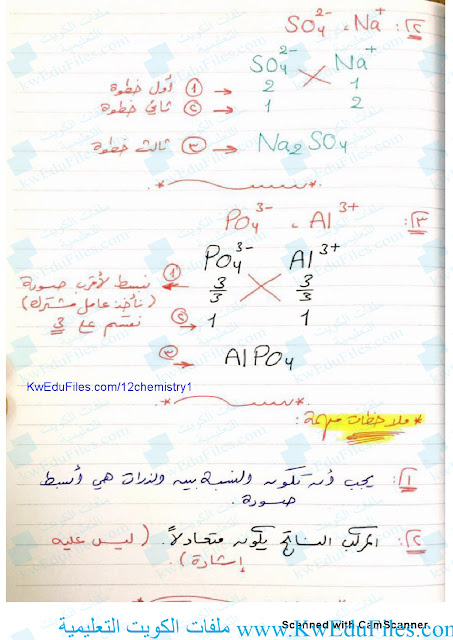 ٢: Na⁺ ، SO₄²⁻
SO₄²⁻ Na⁺
أول خطوة ① → 2 1
ثاني خطوة ② → 1 2
ثالث خطوة ③ → Na₂SO₄
٣: Al³⁺ ، PO₄³⁻
PO₄³⁻ Al³⁺
① نبسط لأقرب صورة ← 3/3 3/3
(نأخذ عامل مشترك)
نقسم على 3 ② → 1 1
③ → AlPO₄
KwEduFiles.com/12chemistry1
* ملاحظات مهمة:
١: يجب أن تكون النسبة بين الذرات هي أبسط
صورة.
٢: المركب الناتج يكون متعادلاً. (ليس عليه
إشارة).
Scanned with CamScanner
ملفات الكويت التعليمية www.KwEduFiles.com